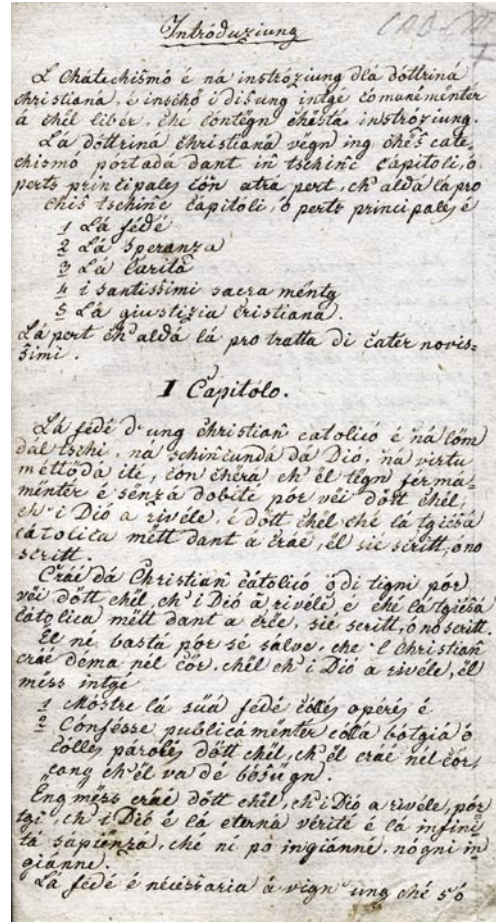 Intróduziung
CAD-CAT
7
L Chátechismó é na instróziung dla dóttriná
christianá, e inschó i disung intgé cómunéménter
á chël liber, che contëgn chesta instróziung.
Lá dóttriná christianá vëgn ing chës cate-
chismó pórtadá dant in tschinc cápitoli, ó
perts principales cón atra pert, ch'aldá lápro
chis tschinc cápitóli, ó perts principales é
1 Lá fédé
2 Lá Speranza
3 Lá Caritá
4 i santissimi sacra méntg
5 Lá giustizia cristianá.
Lá pert ch'aldá lá pro tratta di cater novis=
simi.
I Capitólo.
Lá fedé d'ung christian catolicó é ná lóm
dál tschi, na schincundá dá Dió, ná virtu
mëttödá ite, cón chëra ch'ël tëgn ferma-
ménter é sënzá dobite pór vëi dött chël,
ch'i Dió á rivéle, i dött chël ché lá tgiésá
cátolica mëtt dant a cráe, ël sie scritt, óno
scritt.
Cráe dá Christian cátolicó ó di tigni pór
vëi dött chël, ch'i Dió á rivéle, e ché lá tgiésá
cátolica mëtt dant a crée, sie scritt, ó no scritt.
Ël ne bastá pór sé sálve, che 'l Christian
cráe dema nel cór, chël ch'i Dió á rivéle, ël
mëss intgé
1 Móstre lá süá fedé cólles opérés é
2 Confésse publicáménter cólla bótgiá ó
cólles párolës dött chël, ch'ël cráe nel cór,
cony ch'ël va de bósügn.
Ëng mëss cráe dött chël, ch'i Dió a rivéle, pór
tgi, ch'i Dió é lá eterná vérité é lá infini
tá sápiënzá, ché ni pó ingiánné, nó gni in
giánne.
Lá fedé é nécessaria á vign'ung ché s'ó